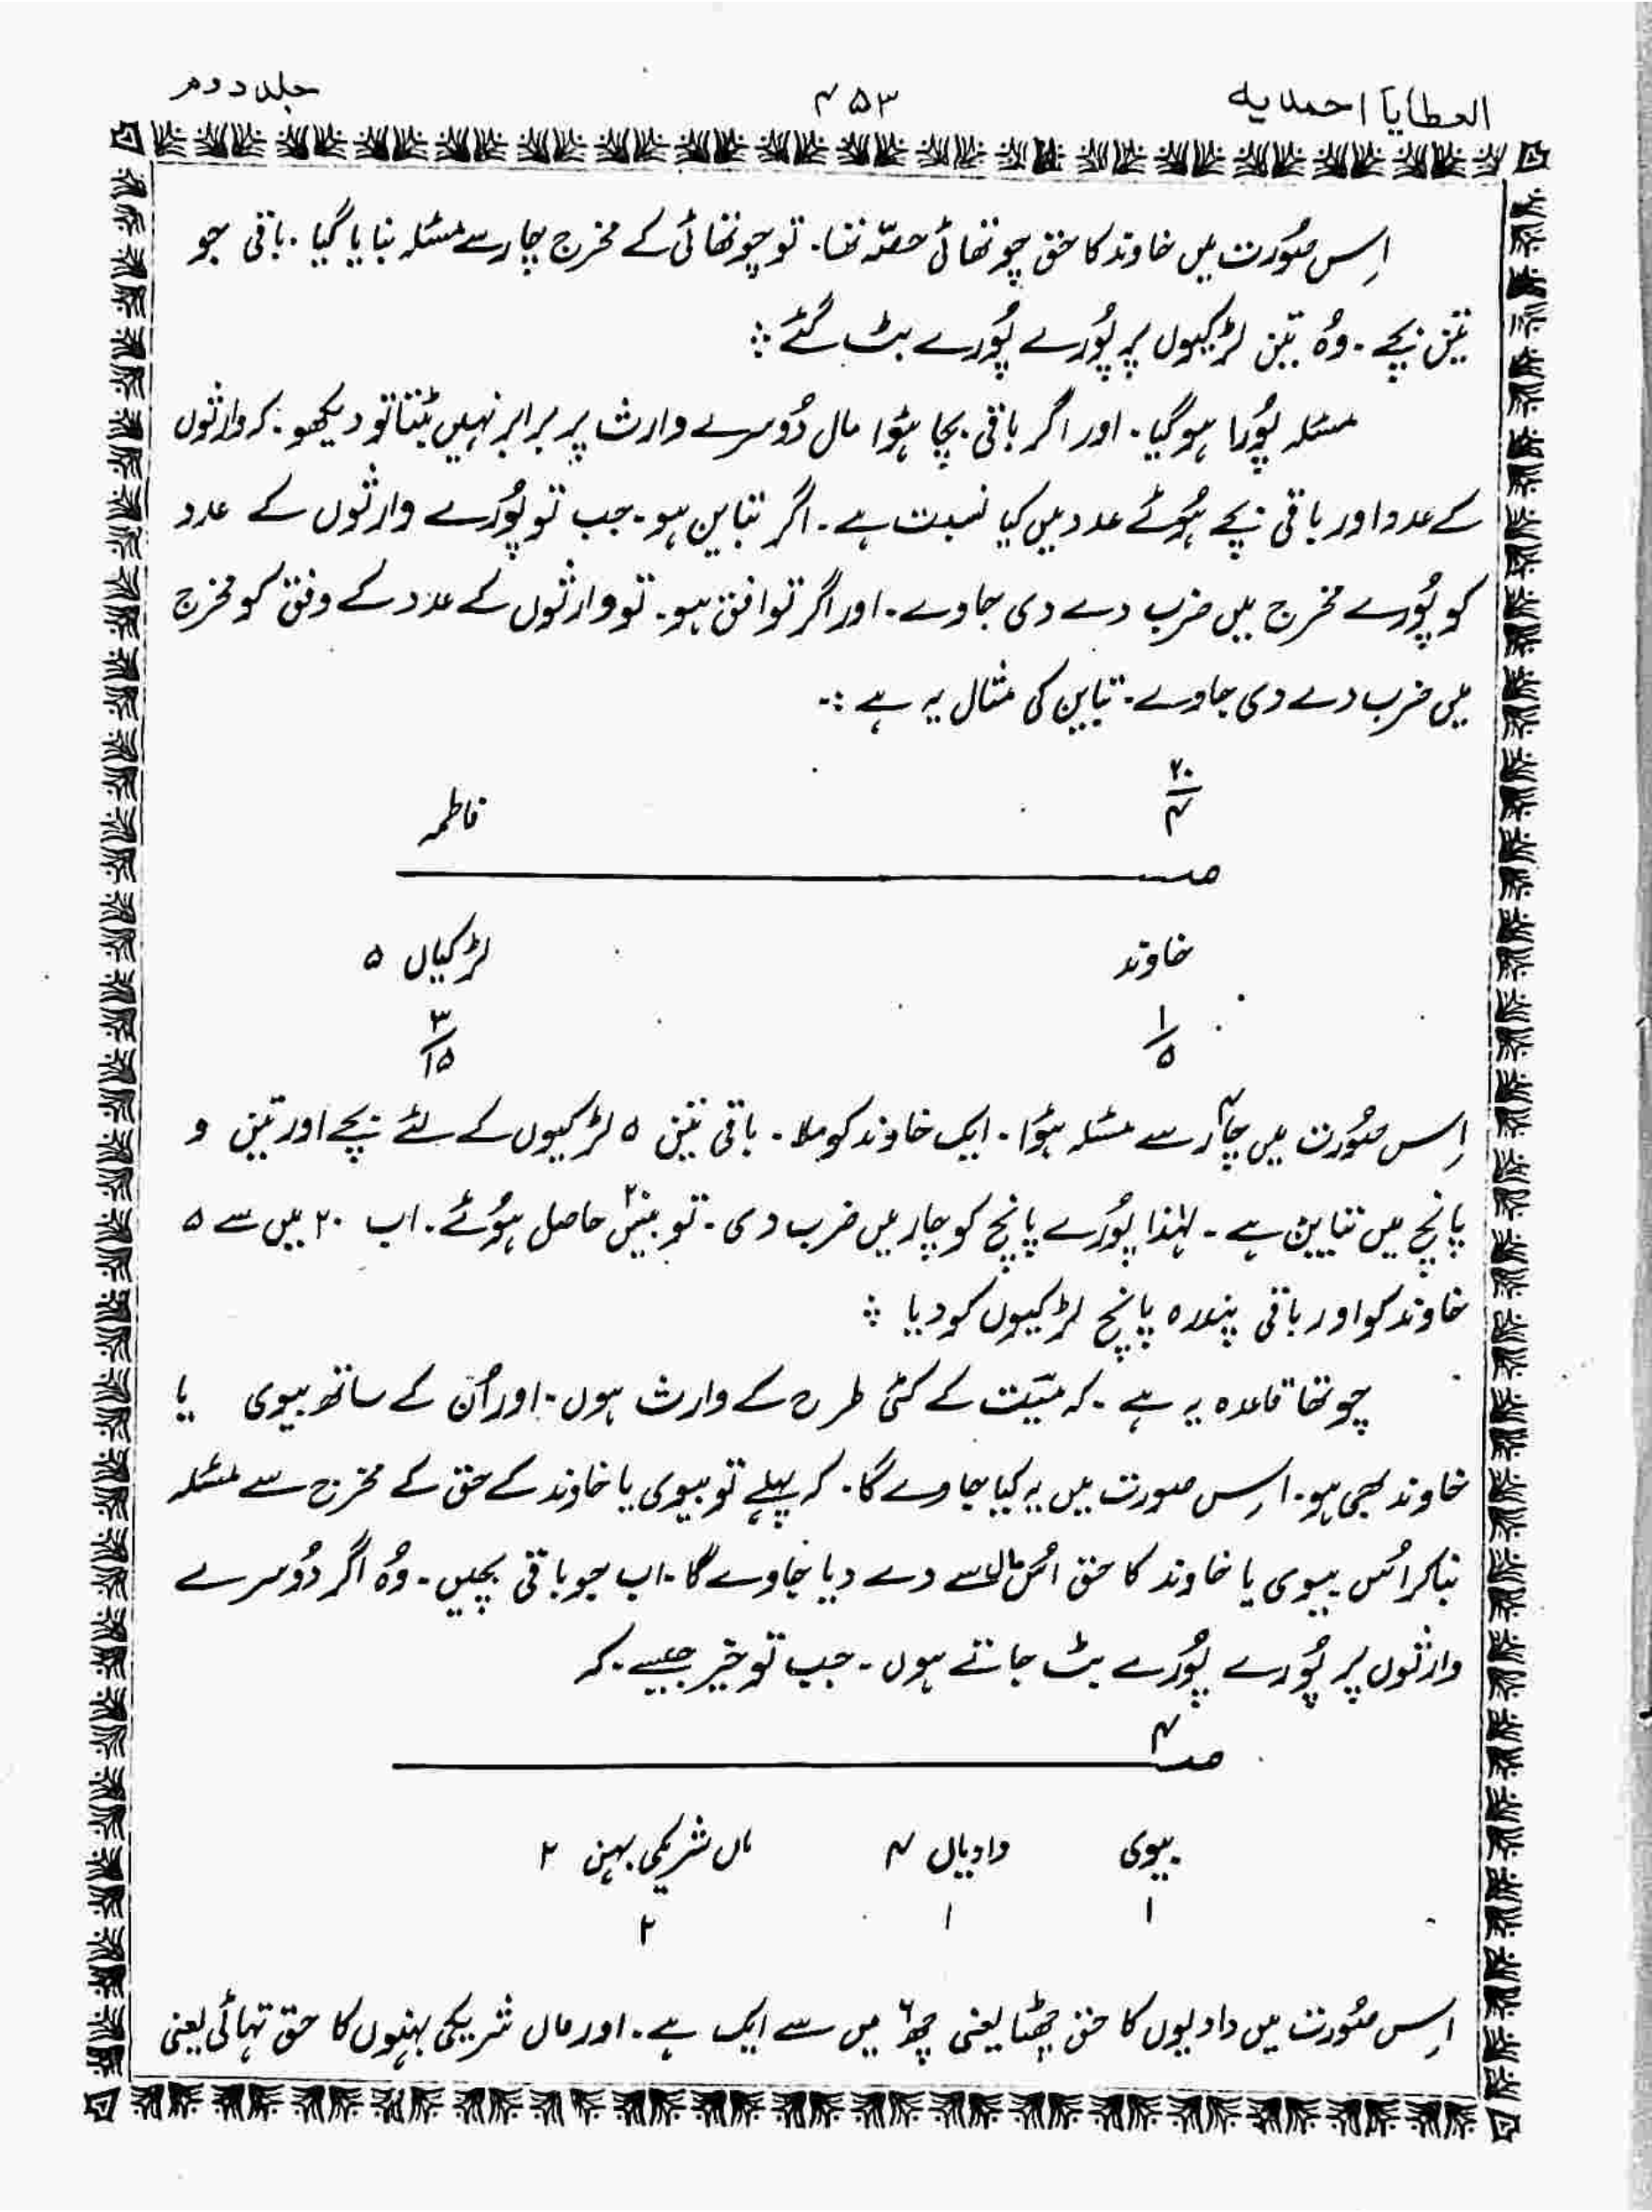 العطایا احمدیہ ۴۵۳ جلد دوم
اِس صُورت میں خاوند کا حق چوتھائی حصّہ تھا۔ تو چوتھائی کے مخرج چار سے مسئلہ بنایا گیا۔ باقی جو
تین بچے۔ وُہ تین لڑکیوں پر پُورے پُورے بٹ گئے ؞
مسئلہ پُورا ہو گیا۔ اور اگر باقی بچا ہؤا مال دُوسرے وارث پر برابر نہیں بٹتا تو دیکھو۔ کہ وارثوں
کے عدد اور باقی بچے ہُوئے عدد میں کیا نسبت ہے۔ اگر تباین ہو۔ جب تو پُورے وارثوں کے عدد
کو پُورے مخرج میں ضرب دے دی جاوے۔ اور اگر توافق ہو۔ تو وارثوں کے عدد کے وفق کو مخرج
میں ضرب دے دی جاوے۔ تباین کی مثال یہ ہے :۔
۲۰
۴ فاطمہ
مـــہ
خاوند لڑکیاں ۵
۱ ۳
۵ ۱۵
اِس صُورت میں چار۴ سے مسئلہ ہؤا۔ ایک خاوند کو ملا۔ باقی تین ۵ لڑکیوں کے لئے بچے اور تین و
پانچ میں تباین ہے۔ لہٰذا پُورے پانچ کو چار میں ضرب دی۔ تو بیس۲۰ حاصل ہُوئے۔ اب ۲۰ میں سے ۵
خاوند کو اور باقی پندرہ پانچ لڑکیوں کو دیا ؞
چوتھا قاعدہ یہ ہے۔ کہ میّت کے کئی طرح کے وارث ہوں۔ اور اُن کے ساتھ بیوی یا
خاوند بھی ہو۔ اِس صورت میں یہ کیا جاوے گا۔ کہ پہلے تو بیوی یا خاوند کے حق کے مخرج سے مسئلہ
بنا کر اُس بیوی یا خاوند کا حق اُس مال سے دے دیا جاوے گا۔ اب جو باقی بچیں۔ وُہ اگر دُوسرے
وارثوں پر پُورے پُورے بٹ جاتے ہوں۔ جب تو خیر جیسے کہ
مـــہ ۴
بیوی دادیاں ۴ ماں شریکی بہن ۲
۱ ۱ ۲
اِس صُورت میں دادیوں کا حق چھٹا یعنی چھ۶ میں سے ایک ہے۔ اور ماں شریکی بہنوں کا حق تہائی یعنی